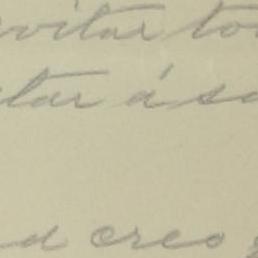 evitar to
tar á sa
d creo